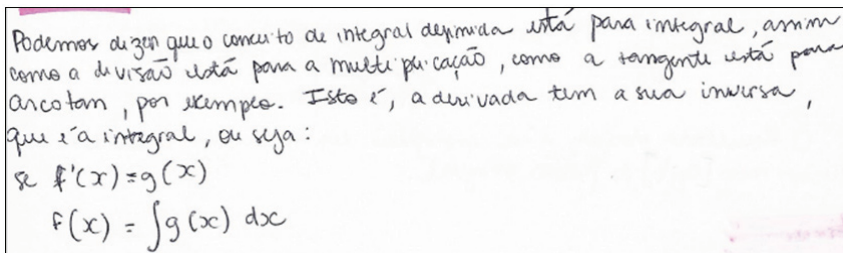 Podemos dizer que o conceito de integral definida está para integral, assim
como a divisão está para a multiplicação, como a tangente está para
arcotan, por exemplo. Isto é, a derivada tem a sua inversa,
que é a integral, ou seja:
se f'(x) = g(x)
F(x) = ∫g(x) dx